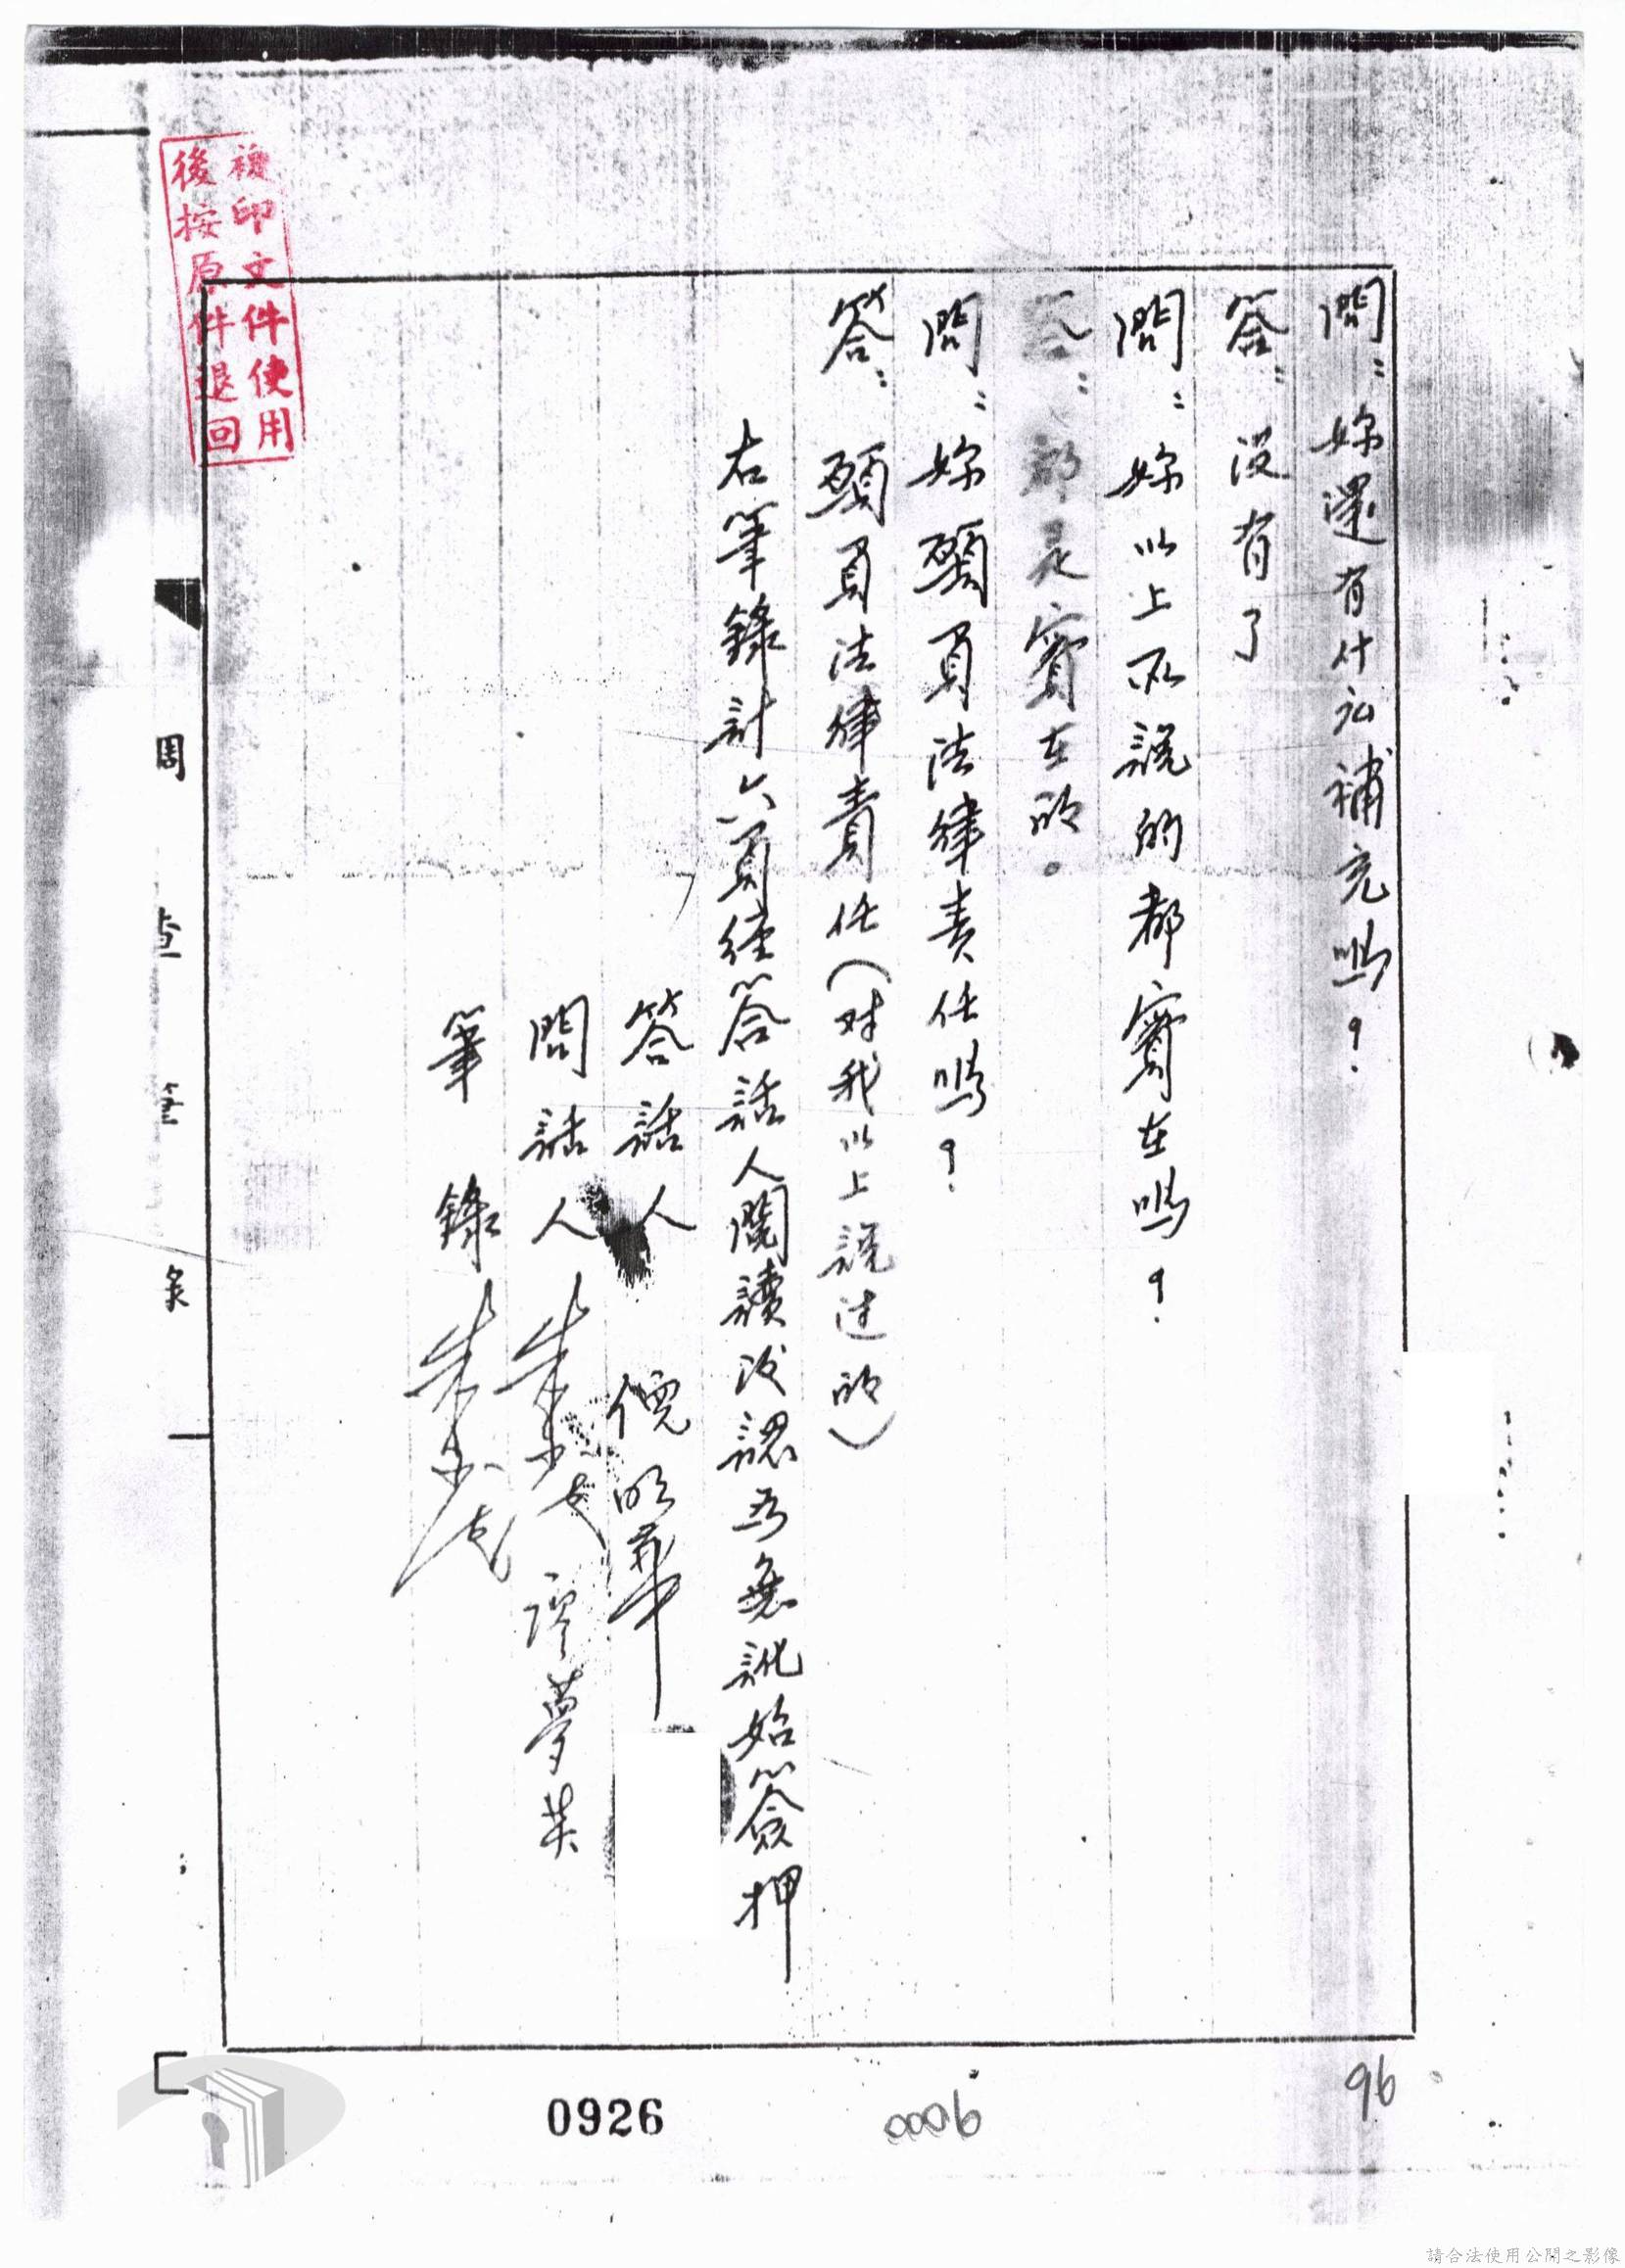 問：妳還有什么補充嗎？
答：沒有了
問：妳以上所說的都實在嗎？
答：都是實在的。
問：妳願負法律責任嗎？
答：願負法律責任（对我以上說过的）
右筆錄計六頁經答話人閱讀後認為無訛始簽押
答話人 倪明華
問話人 廖夢英
筆錄
複印文件使用
後按原件退回
調查筆錄
0926
0006
96
請合法使用公開之影像